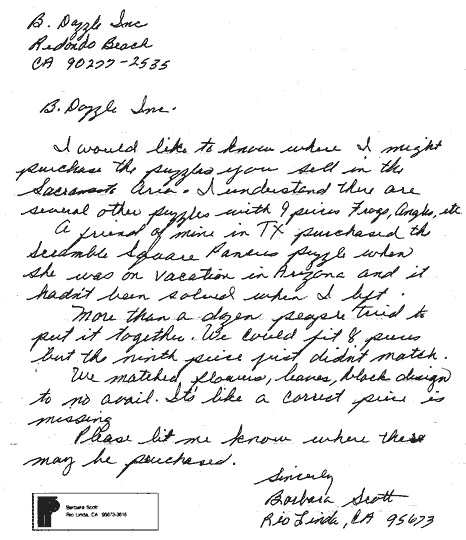 B. Dazzle Inc
Redondo Beach
CA 90277-2535
B. Dazzle Inc.
I would like to know where I might
purchase the puzzles you sell in the
Sacramento Area. I understand there are
several other puzzles with 9 pieces Frogs, Angles, etc
A friend of mine in TX purchased the
Scramble Square Pansies puzzle when
she was on vacation in Arizona and it
hadn't been solved when I left.
More than a dozen people tried to
put it together. We could fit 8 pieces
but the ninth peice just didn't match.
We matched flowers, leaves, black design
to no avail. Its like a correct peice is
missing
Please let me know where these
may be purchased.
Sincerly
Barbara Scott
Rio Linda, CA 95673
Barbara Scott
Rio Linda, CA 95673-3016